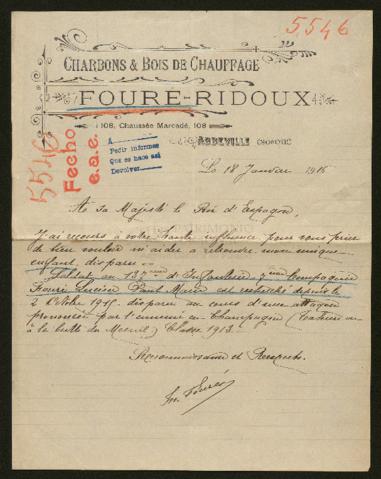 5546
CHARBONS & BOIS DE CHAUFFAGE
FOURÉ-RIDOUX
108, Chaussée Marcadé, 108
ABBEVILLE (SOMME)
5546
Fecho
c.a.e.
A
Pedir informes
Que se hace así
Devolver
Le 18 Janvier 1916
A Sa Majesté le Roi d'Espagne,
J'ai recours à votre haute influence pour vous prier
de bien vouloir m'aider à retrouver mon unique
enfant, disparu
Soldat au d'Infanterie, 7 Compagnie
Fouré Lucien Paul Marie est recherché depuis le
2 Octobre 1915, disparu au cours d'une attaque
prononcée par l'ennemi en Champagne (Tahure ou
à la butte du Mesnil) Classe 1913.
Reconnaissance et Respects.
Fouré